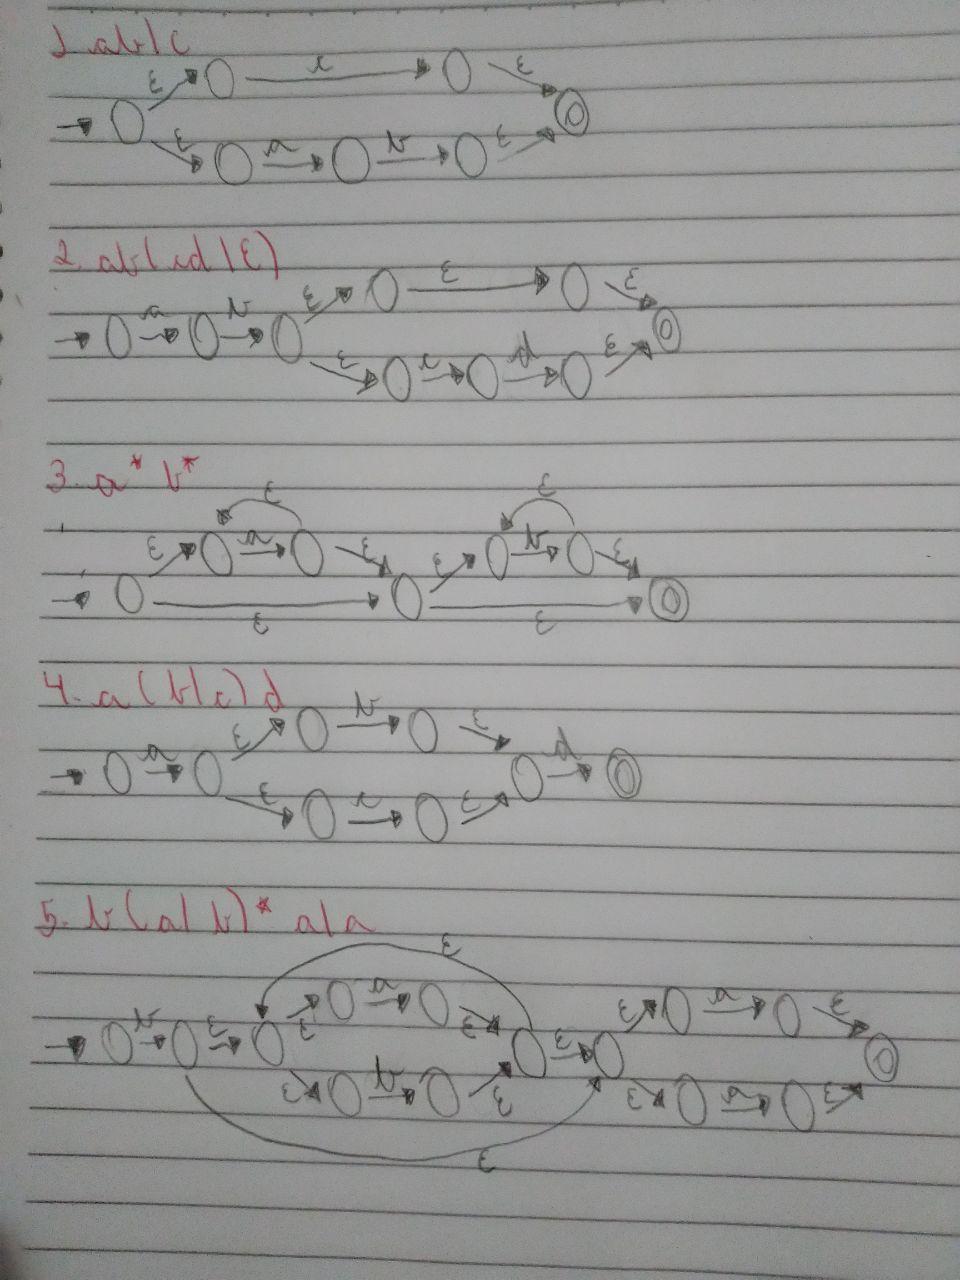 1. ab|c
ε c ε
ε a b ε
2. ab(cd|ε)
a b ε ε ε
ε c d ε
3. a* b*
ε ε
ε a ε ε b ε
ε ε
4. a(b|c)d
ε b ε
a d
ε c ε
5. b(a|b)* a|a
ε
ε a ε ε a ε
b ε ε
ε b ε ε a ε
ε